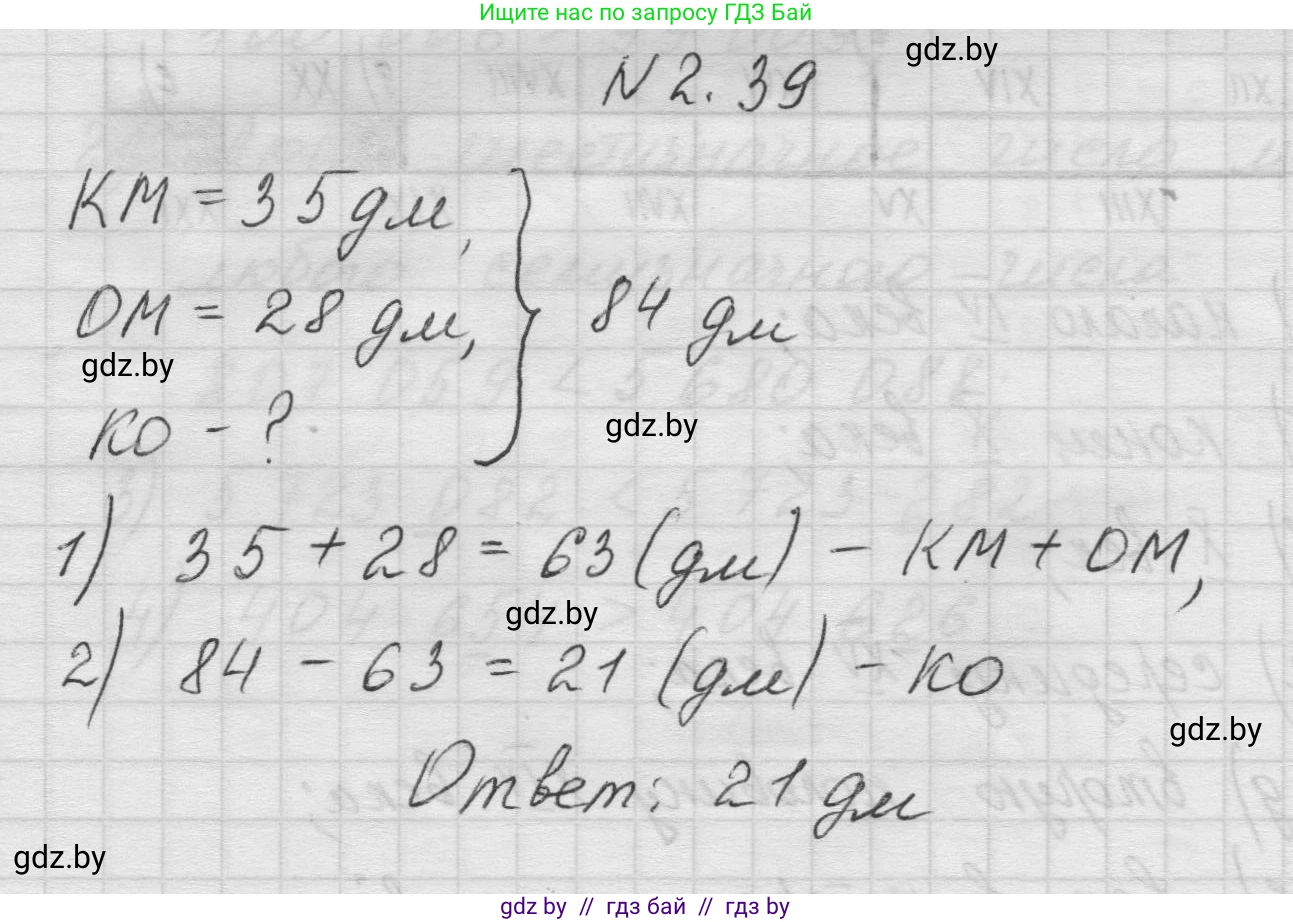 Ищите нас по запросу ГДЗ Бай
gdz.by
N 2.39
КМ = 35 дм,
ОМ = 28 дм, } 84 дм
gdz.by
КО - ?
gdz.by
1) 35 + 28 = 63 (дм) - КМ + ОМ,
gdz.by
2) 84 - 63 = 21 (дм) - КО
gdz.by
Ответ: 21 дм
gdz.by
gdz by // гдз бай // гдз by